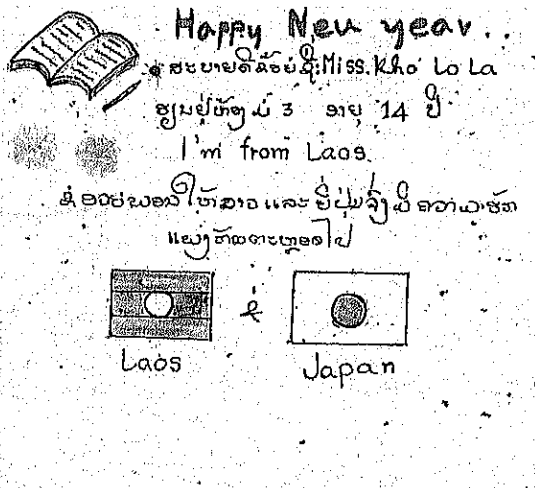 Happy New year..
ສະບາຍດີຂ້ອຍຊື່:Miss.Kho Lo La
ຮຽນຢູ່ຫ້ອງ ມ 3 ອາຍຸ 14 ປີ
I'm from Laos.
ຂໍອວຍພອນໃຫ້ລາວແລະຍີ່ປຸ່ນຈົ່ງມີຄວາມຮັກ
ແພງກັນຕະຫຼອດໄປ
&
Laos
Japan